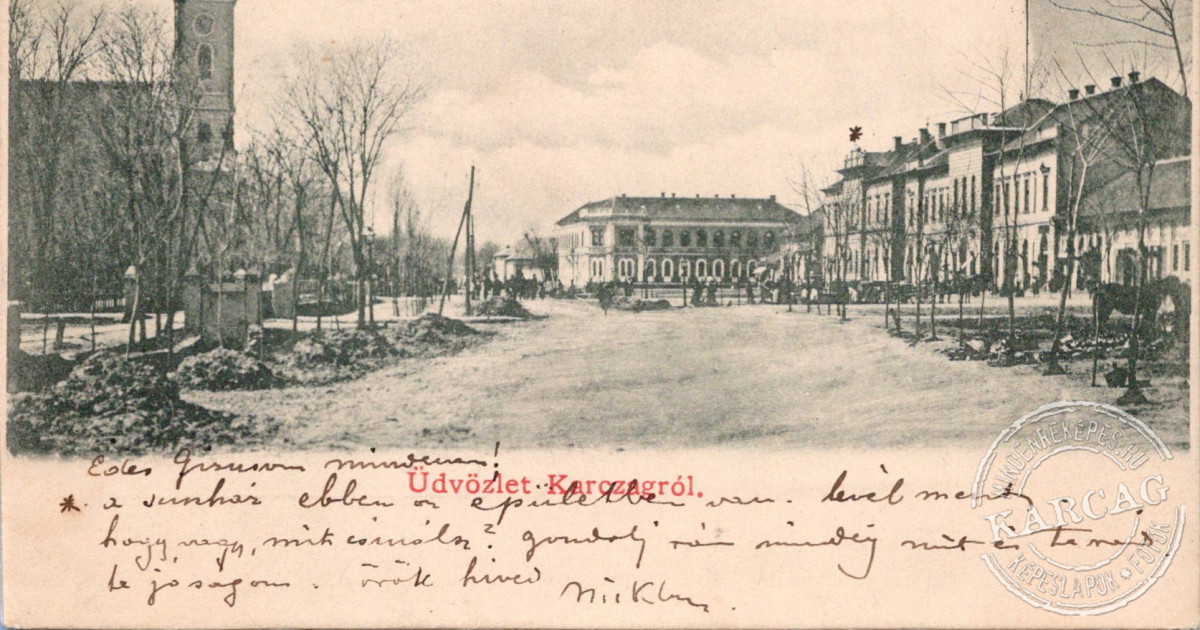 Édes Gizusom mindenem!
Üdvözlet Karczagról.
* a szinház ebben az épületben van. levél ment
hogy vagy, mit csinálsz? gondolj rám mindég mint én te reád
te jóságom. örök hived
MINDENREKÉPES.HU
KARCAG
KÉPESLAPOK * FOTÓK